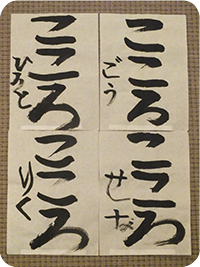 こころ
ごう
こころ
ひろと
こころ
せな
こころ
りく